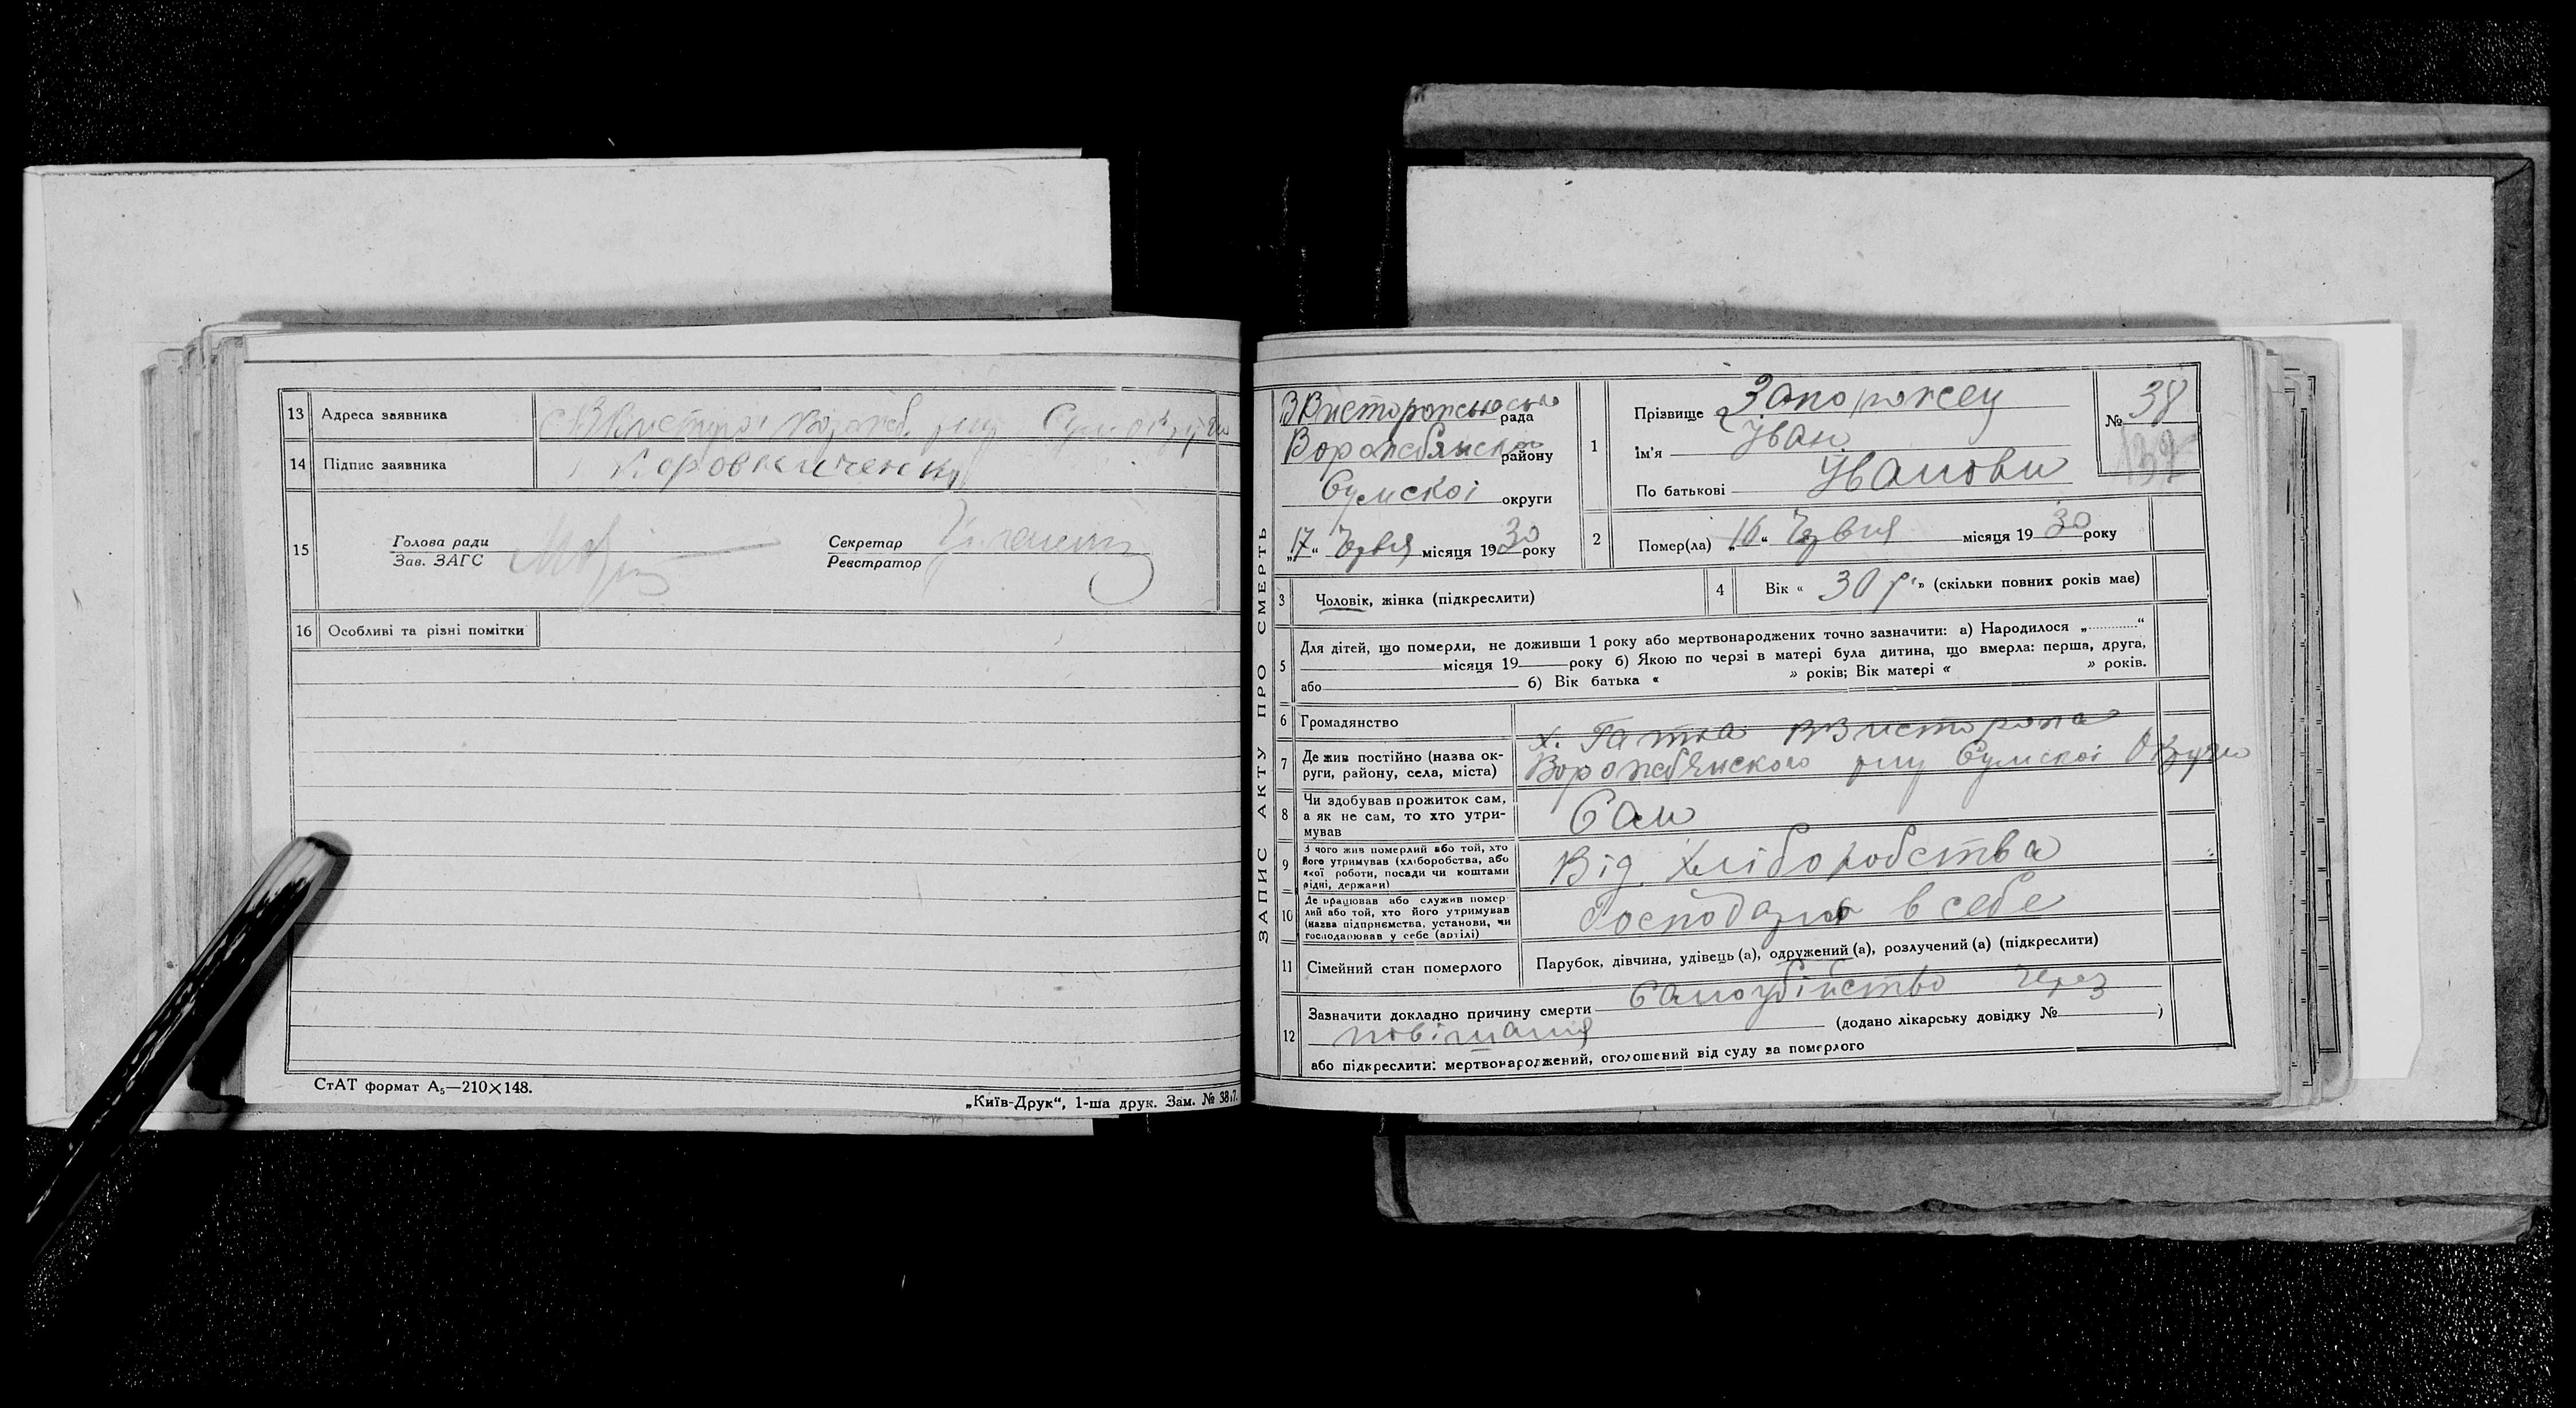 13 Адреса заявника
14 Підпис заявника Коровниченко
15 Голова ради
Зав. ЗАГС
Секретар
Реєстратор
16 Особливі та різні помітки
СтАТ формат А₅—210×148.
„Київ-Друк“, 1-ша друк. Зам. №
ЗАПИС АКТУ ПРО СМЕРТЬ
рада
району
Сумскоі округи
„17“ Червня місяця 1930 року
1 Прізвище Запорожец
Ім'я Іван
По батькові Іванови
№ 38
2 Помер(ла) „16“ Червня місяця 1930 року
3 Чоловік, жінка (підкреслити)
4 Вік « 30 р » (скільки повних років має)
5 Для дітей, що померли, не доживши 1 року або мертвонароджених точно зазначити: а) Народилося „............“
місяця 19 року б) Якою по черзі в матері була дитина, що вмерла: перша, друга,
або б) Вік батька « » років; Вік матері « » років.
6 Громадянство
7 Де жив постійно (назва ок-
руги, району, села, міста)
х. Гатка ВВисторопа
Ворожбянского рну Сумскоі Округи
8 Чи здобував прожиток сам,
а як не сам, то хто утри-
мував
Сам
9 З чого жив померлий або той, хто
його утримував (хліборобства, або
якої роботи, посади чи коштами
рідні, держави)
Від хліборобства
10 Де працював або служив помер-
лий або той, хто його утримував
(назва підприємства, установи, чи
господарював у себе (артілі)
Господарюв в себе
11 Сімейний стан померлого
Парубок, дівчина, удівець (а), одружений (а), розлучений (а) (підкреслити)
12 Зазначити докладно причину смерти Самоубійство через
повішання (додано лікарську довідку № )
або підкреслити: мертвонароджений, оголошений від суду за померлого